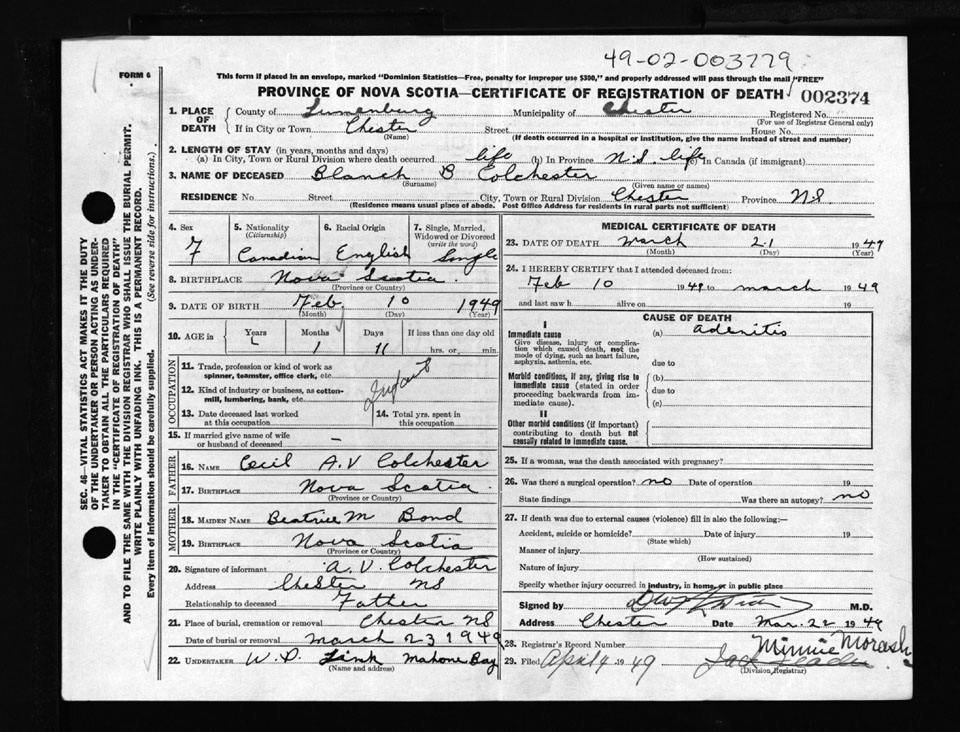 49-02-003779
FORM 6
This form if placed in an envelope, marked "Dominion Statistics—Free, penalty for improper use $300," and properly addressed will pass through the mail "FREE"
PROVINCE OF NOVA SCOTIA—CERTIFICATE OF REGISTRATION OF DEATH 002374
1. PLACE OF DEATH
County of Lunenburg Municipality of Chester Registered No.
(For use of Registrar General only)
If in City or Town Chester Street House No.
(Name) (If death occurred in a hospital or institution, give the name instead of street and number)
2. LENGTH OF STAY (in years, months and days)
(a) In City, Town or Rural Division where death occurred life (b) In Province N.S. life (c) In Canada (if immigrant)
3. NAME OF DECEASED Blanch B Colchester
(Surname) (Given name or names)
RESIDENCE No. Street City, Town or Rural Division Chester Province NS
(Residence means usual place of abode. Post Office Address for residents in rural parts not sufficient)
4. Sex 5. Nationality (Citizenship) 6. Racial Origin 7. Single, Married, Widowed or Divorced (write the word)
F Canadian English Single
8. BIRTHPLACE Nova Scotia.
(Province or Country)
9. DATE OF BIRTH Feb 10 1949
(Month) (Day) (Year)
10. AGE in Years Months Days If less than one day old
1 11 hrs. or min.
OCCUPATION
11. Trade, profession or kind of work as spinner, teamster, office clerk, etc.
12. Kind of industry or business, as cotton-mill, lumbering, bank, etc.
Infant
13. Date deceased last worked at this occupation
14. Total yrs. spent in this occupation
15. If married give name of wife or husband of deceased —
FATHER
16. NAME Cecil A.V Colchester
17. BIRTHPLACE Nova Scotia.
(Province or Country)
MOTHER
18. MAIDEN NAME Beatrice M Bond
19. BIRTHPLACE Nova Scotia
(Province or Country)
20. Signature of informant A. V. Colchester
Address Chester NS
Relationship to deceased Father
21. Place of burial, cremation or removal Chester NS
Date of burial or removal March 23 1949
22. UNDERTAKER W. D. Link Mahone Bay
(Name and address)
MEDICAL CERTIFICATE OF DEATH
23. DATE OF DEATH March 21 1949
(Month) (Day) (Year)
24. I HEREBY CERTIFY that I attended deceased from:
Feb 10 1949 to march 1949
and last saw h alive on 19
CAUSE OF DEATH
I
Immediate cause (a) adenitis
Give disease, injury or complication which caused death, not the mode of dying, such as heart failure, asphyxia, asthenia, etc.
due to
Morbid conditions, if any, giving rise to immediate cause (stated in order proceeding backwards from immediate cause).
(b)
due to
(c)
II
Other morbid conditions (if important) contributing to death but not causally related to immediate cause.
25. If a woman, was the death associated with pregnancy?
26. Was there a surgical operation? no Date of operation 19
State findings Was there an autopsy? no
27. If death was due to external causes (violence) fill in also the following:—
Accident, suicide or homicide? Date of injury 19
(State which)
Manner of injury
(How sustained)
Nature of injury
Specify whether injury occurred in industry, in home, or in public place
Signed by M.D.
Address Chester Date Mar. 22 1949
28. Registrar's Record Number Minnie Morash
29. Filed April 9 1949
(Division Registrar)
SEC. 46—VITAL STATISTICS ACT MAKES IT THE DUTY
OF THE UNDERTAKER OR PERSON ACTING AS UNDER-
TAKER TO OBTAIN ALL THE PARTICULARS REQUIRED
IN THE "CERTIFICATE OF REGISTRATION OF DEATH"
AND TO FILE THE SAME WITH THE DIVISION REGISTRAR WHO SHALL ISSUE THE BURIAL PERMIT.
WRITE PLAINLY WITH UNFADING INK. THIS IS A PERMANENT RECORD.
Every item of information should be carefully supplied. (See reverse side for instructions.)